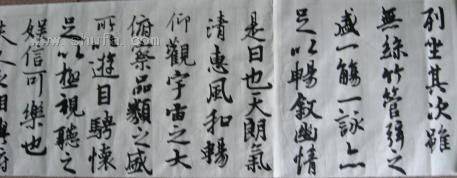 列坐其次雖
無絲竹管弦之
盛一觴一詠亦
足以暢敘幽情
是日也天朗氣
清惠風和暢
仰觀宇宙之大
俯察品類之盛
所以遊目騁懷
足以極視聽之
娛信可樂也
夫人之相與俯